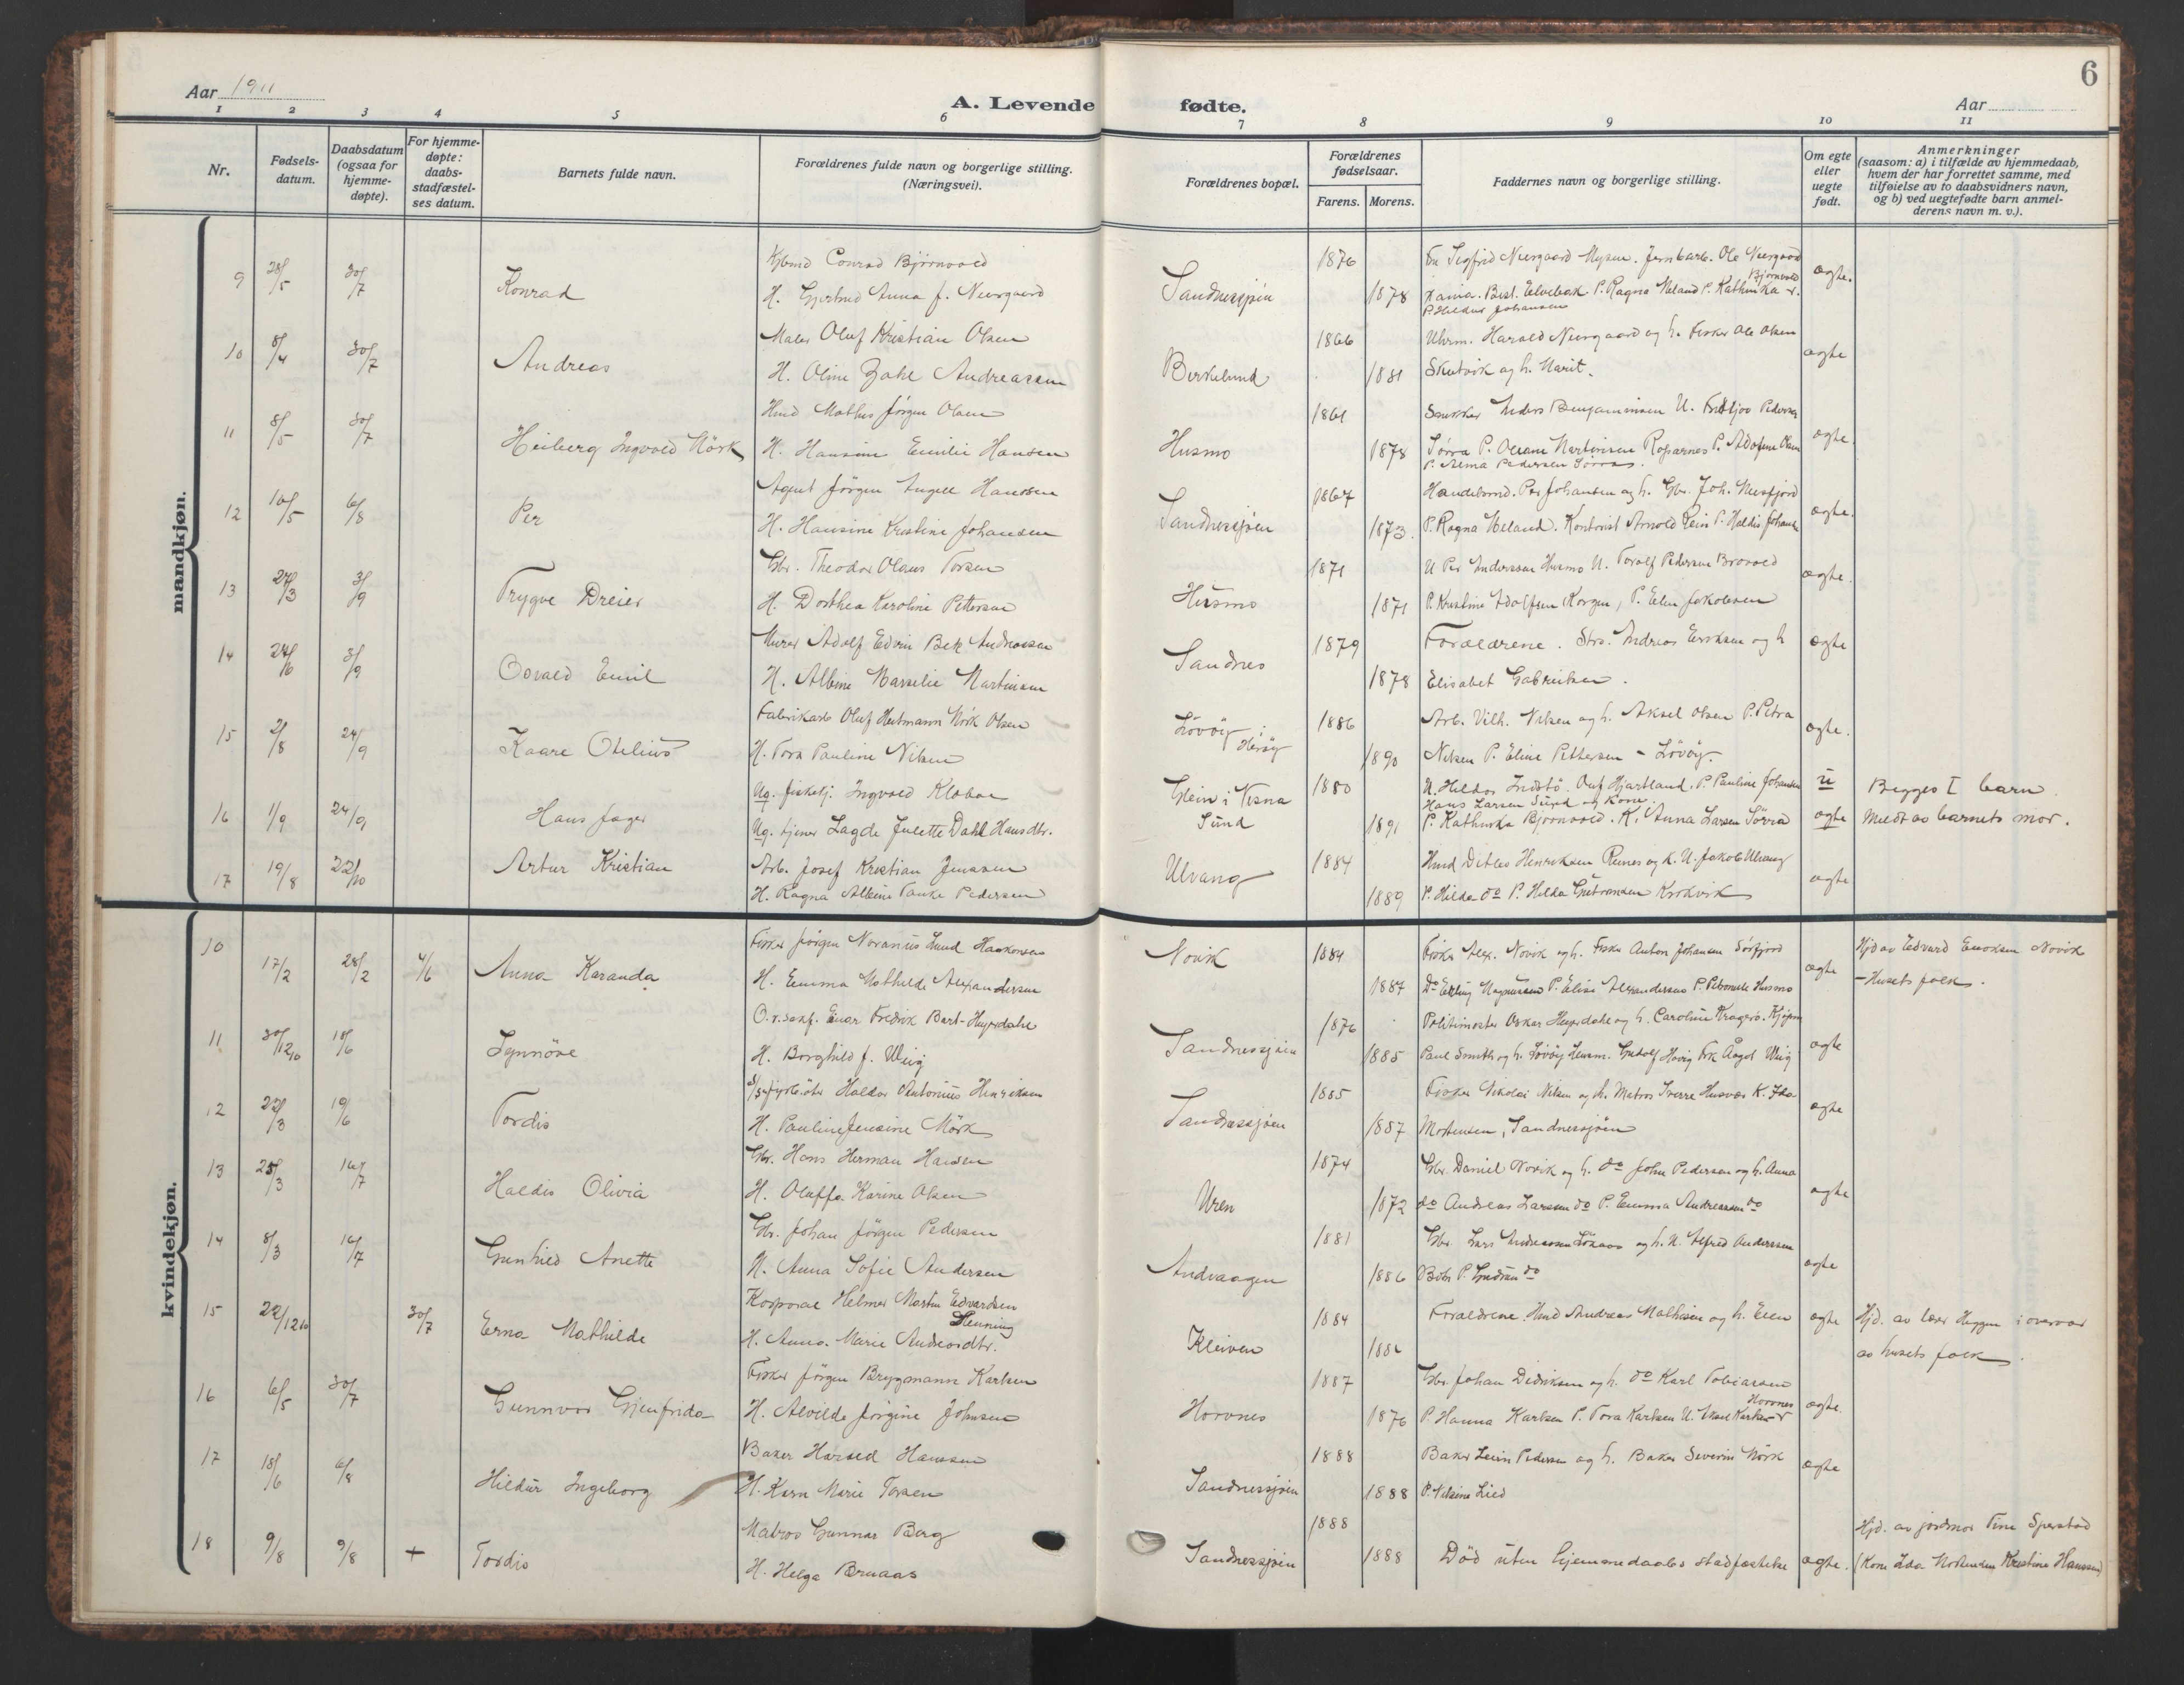 6
Aar 1911
A. Levende fødte.
Aar
1 2 3 4 5 6 7 8 9 10 11
Nr.
Fødsels-
datum.
Daabsdatum
(ogsaa for
hjemme-
døpte).
For hjemme-
døpte:
daabs-
stadfæstel-
ses datum.
Barnets fulde navn.
Forældrenes fulde navn og borgerlige stilling.
(Næringsvei).
Forældrenes bopæl.
Forældrenes
fødselsaar.
Farens. Morens.
Faddernes navn og borgerlige stilling.
Om egte
eller
uegte
født.
Anmerkninger
(saasom: a) i tilfælde av hjemmedaab,
hvem der har forrettet samme, med
tilføielse av to daabsvidners navn,
og b) ved uegtefødte barn anmel-
derens navn m. v.).
mandkjøn.
9 28/5 30/7 Konrad
Conrad Bjørnvold
H. Gjertrud Anna f. Neergaard
Sandnessjøen 1876 1878
Sigfrid Neergaard Ole Neergaard
Bjørnvold
P. Ragna P. Kathinka
Johansen
ægte.
10 8/4 30/7 Andreas
Maler Oluf Kristian Olsen
H. Oline Zahl Andreassen
Birkelund 1866 1881
Uhrm. Harald Neergaard og h. Fisker Ole Olsen
Skutvik og h. Marit.
ægte
11 8/5 30/7 Heiberg Ingvald Mörk
Hmd Mathis Jörgen Olsen
H. Hansine Emilie Hansen
Husmo 1861 1878
Snekker Anders Benjaminsen U. Fridtjov Pedersen
Sørra P. Martinsen P. Olsen
P. Pedersen
ægte.
12 10/5 6/8 Per
Agent Jörgen Angell Hanssen
H. Hansine Kristine Johansen
Sandnessjøen 1867 1873.
Handelsmd. Per Johansen og h. Gbr. Joh. Nesfjord
P. Ragna Kontorist Arnold Rein P. Haldis Johansen
ægte.
13 27/3 3/9 Trygve Dreier
Gbr. Theodor Olaus Torsen
H. Dorthea Karoline Pettersen
Husmo 1871 1871
U Per Anderssen Husmo U. Toralf Pedersen Brovold
P. Kristine Adolfsen Korgen, P. Elen Jakobsen
ægte.
14 24/6 3/9 Osvald Emil
Murer Adolf Edvin Bek Andreassen
H. Albine Marselie Martinsen
Sandnes 1879 1878
Forældrene. Andreas Eriksen og h
Elisabet Gabrielsen.
ægte
15 2/8 24/9 Kaare Otelius
Fabrikarb Oluf Hertmann Mörk Olsen
H. Tora Pauline Nilsen
Lövöy i Heröy 1886 1890
Arb. Vilh. Nilsen og h. Aksel Olsen P. Petra
Nilsen P. Eline Pettersen - Lövöy.
ægte.
16 1/9 24/9 Hans Jager
Ug. fiskelj. Ingvald Klobae
Ug. tjener Lagde Julette Dahl Hansdtr.
Glein i Nesna
Sund 1880 1891
U. Hildor Oluf Hjartland. P. Pauline Johansen
Hans Larsen Sund og Kone.
P. Kathinka Bjørnvold. K. Anna Larsen Sörra
u
ægte
Begges I barn.
Meldt av barnets mor.
17 19/8 22/10 Artur Kristian
Arb. Josef Kristian Jenssen
H. Ragna Albine Tanke Pedersen
Ulvang 1884 1889
Hmd Ditlev Henriksen Reines og K. U. Jakob Ulvang
P. Hilda do P. Hilda Krokvik
ægte
kvindekjøn.
10 17/2 28/2 4/6 Anna Karanda
Fisker Jörgen Noranius Lund Haakonsen
H. Emma Mathilde Alexandersen
Novik 1884 1887
Fisker Alex. Novik og h. Fisker Anton Johansen Sörfjord
Do Erling Magnussen P. Elise Alexandersen P. Husmo
ægte
Hjd av Edvard Enoksen Novik
- Husets folk.
11 30/12 10 18/6 Synnöve
O.r.sakf. Einar Fredrik Bart-Heyerdahl
H. Borghild f. Wiig
Sandnessjøen 1876 1885
Politimester Oskar Heyerdahl og h. Caroline Kragerö. Kjöpm
Paul Smith og h. Lövöy Havig Frk Aagot Wiig
ægte
12 22/3 19/6 Tordis
Haldor Antonius Henriksen
H. Pauline Jensine Mörk
Sandnessjøen 1885 1887
Fisker Nikolai Nilsen og h. Matros Sverre Husvæs K. Ida
Mortensen, Sandnessjøen
ægte
13 25/3 16/7 Haldis Olivia
Gbr. Hans Herman Hansen
H. Oluffa Karine Olsen
Uren 1874 1872
Gbr. Daniel Novik og h. do John Pedersen og h. Anna
do Andreas Larssen do P. Emma Andreassen do
ægte
14 8/3 16/7 Gunhild Anette
Gbr. Johan Jörgen Pedersen
H. Anna Sofie Andersen
Andvaagen 1881 1886
Gbr. Lars Andreassen og h. U. Alfred Anderssen
P. Gudrun do
ægte
15 22/12 10 30/7 Erna Mathilde
Korporal Helmer Martin Edvardsen
Stenning
H. Anna Marie Andreasdtr.
Kleiven 1884 188
Forældrene. Hmd Andreas Mathisen og h. Elen
ægte
Hjd. av lærer Heggen i overvær
av husets folk.
16 6/5 30/7 Gunnvor Gjenfrida
Fisker Jörgen Brygmann Karlsen
H. Alvilde Jörgine Johnsen
Horvnes 1887 1876
Gbr. Johan Didriksen og h. do Karl Tobiassen
Horvnes
P. Hanna Karlsen P. Tora Karlsen U. Karlsen
ægte.
17 18/6 6/8 Hildur Ingeborg
Baker Harald Hanssen
H. Karn Marie Torsen
Sandnessjøen 1888 1888
Baker Leim Pedersen og h. Baker Severin Mörk
P. Nilsine Lied
ægte
18 9/8 9/8 + Tordis
Matros Gunnar Berg
H. Helga Bruaas
Sandnessjøen 1888 1888
Död uten hjemmedaabs stadfæstelse
ægte.
Hjd. av jordmor Fina Sperstad
(Kone Ida Mortensen Kristine Hanssen)